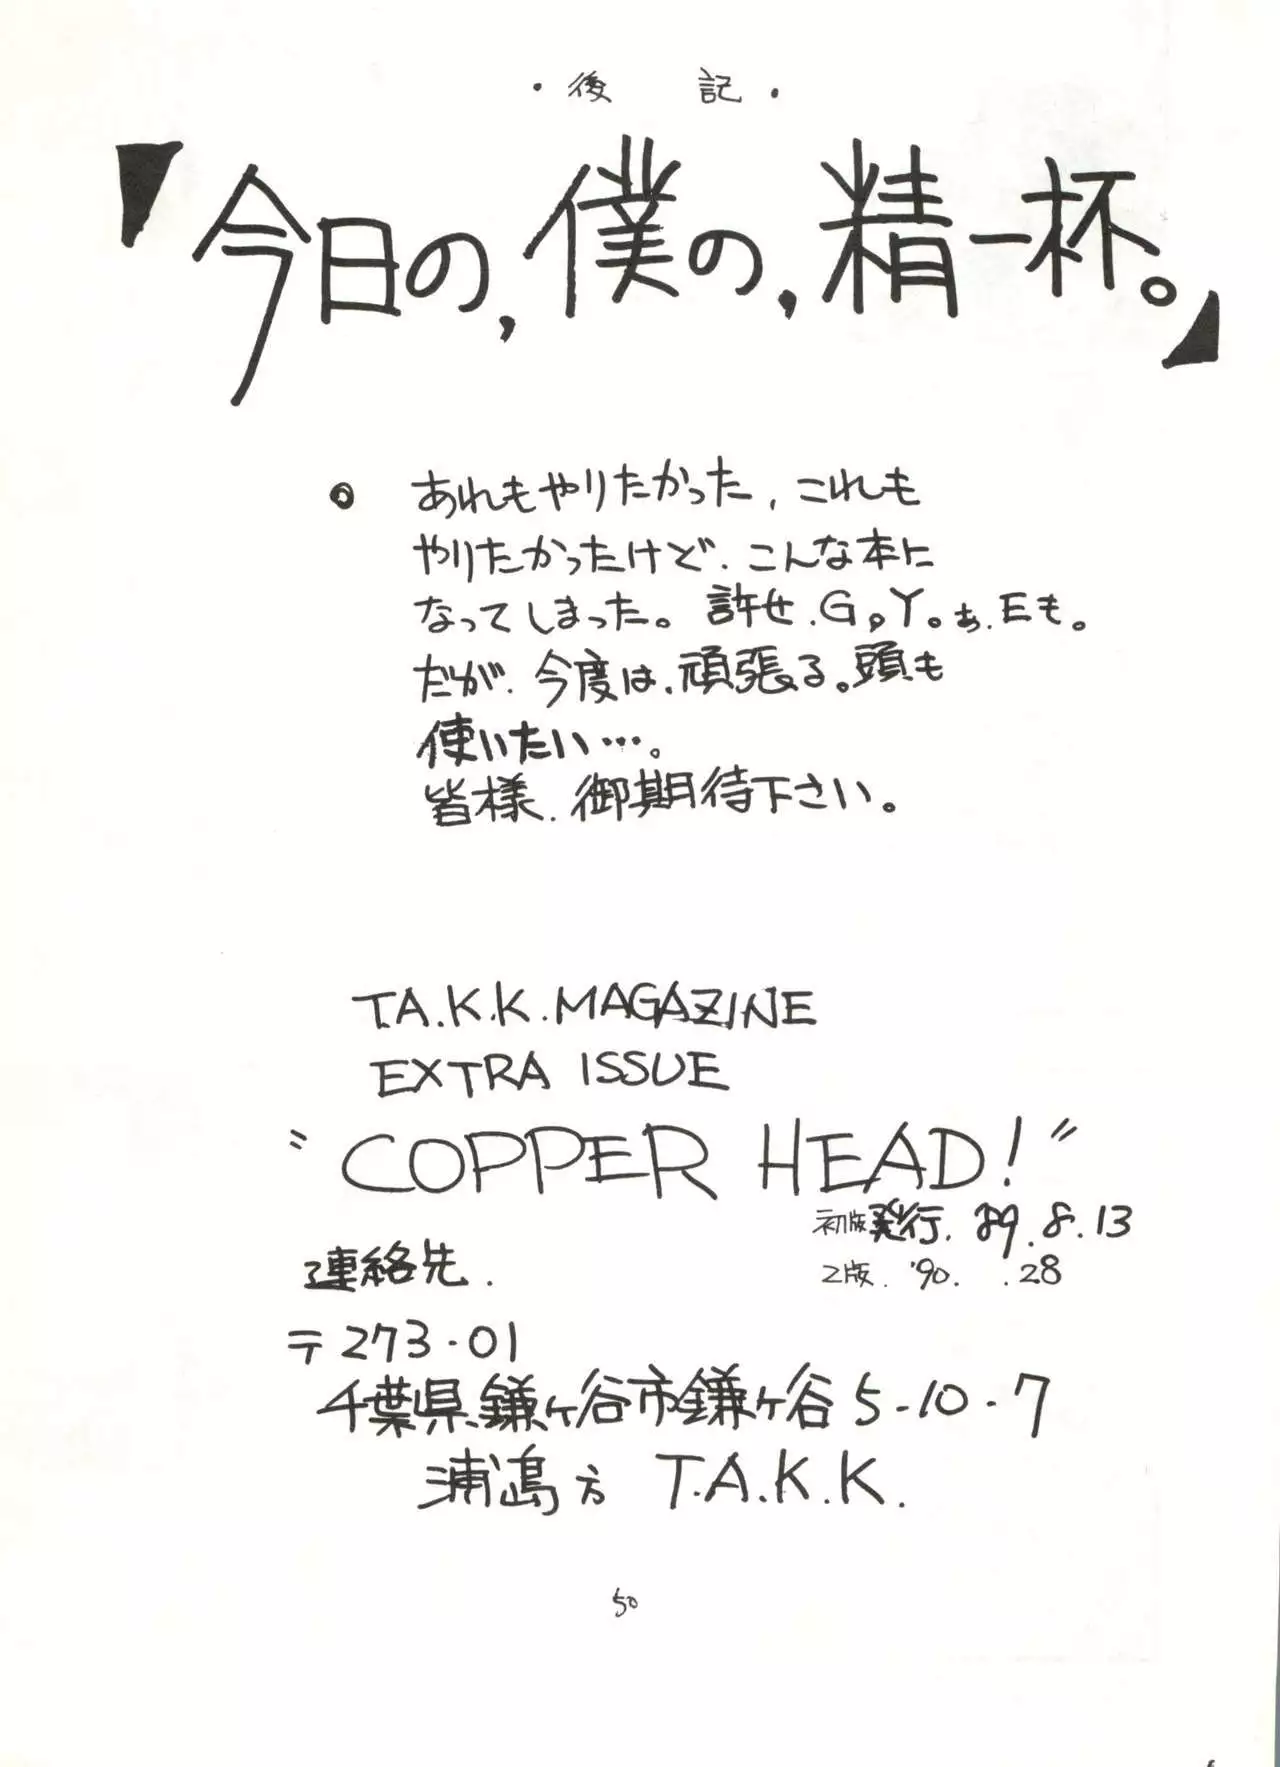 ・後記・
『今日の,僕の,精一杯。』
◎ あれもやりたかった、これも
やりたかったけど、こんな本に
なってしまった。許せ、G,Y。あ、Eも。
だが、今度は、頑張る。頭も
使いたい…。
皆様、御期待下さい。
T.A.K.K.MAGAZINE
EXTRA ISSUE
"COPPER HEAD!"
初版発行. '89.8.13
2版. '90. .28
連絡先.
〒273-01
千葉県鎌ヶ谷市鎌ヶ谷5-10-7
浦嶋方 T.A.K.K.
50